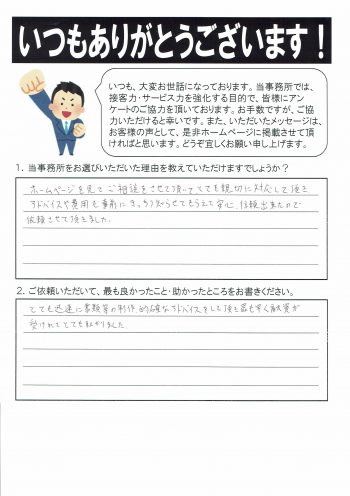 いつもありがとうございます！
いつも、大変お世話になっております。当事務所では、
接客力・サービス力を強化する目的で、皆様にアン
ケートのご協力を頂いております。お手数ですが、ご協
力いただけると幸いです。また、いただいたメッセージは、
お客様の声として、是非ホームページに掲載させて頂
ければと思います。どうぞ宜しくお願い申し上げます。
1．当事務所をお選びいただいた理由を教えていただけますでしょうか？
ホームページを見てご相談をさせて頂いてとても親切に対応して頂き
アドバイスや費用も事前にきっちり知らせてもらえて安心、信頼出来たので
依頼させて頂きました。
2．ご依頼いただいて、最も良かったこと・助かったところをお書きください。
とても迅速に書類等の制作、的確なアドバイスをして頂き最も早く融資が
受けれてとても助かりました。